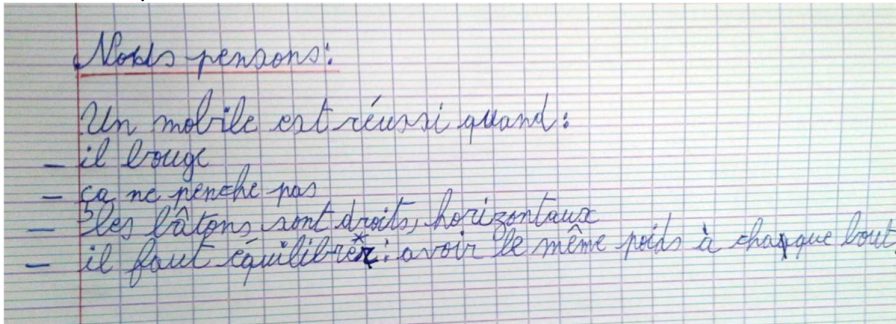 Nous pensons :
Un mobile est réussi quand :
– il bouge
– ça ne penche pas
– les bâtons sont droits, horizontaux
– il faut équilibrer : avoir le même poids à chaque bout.